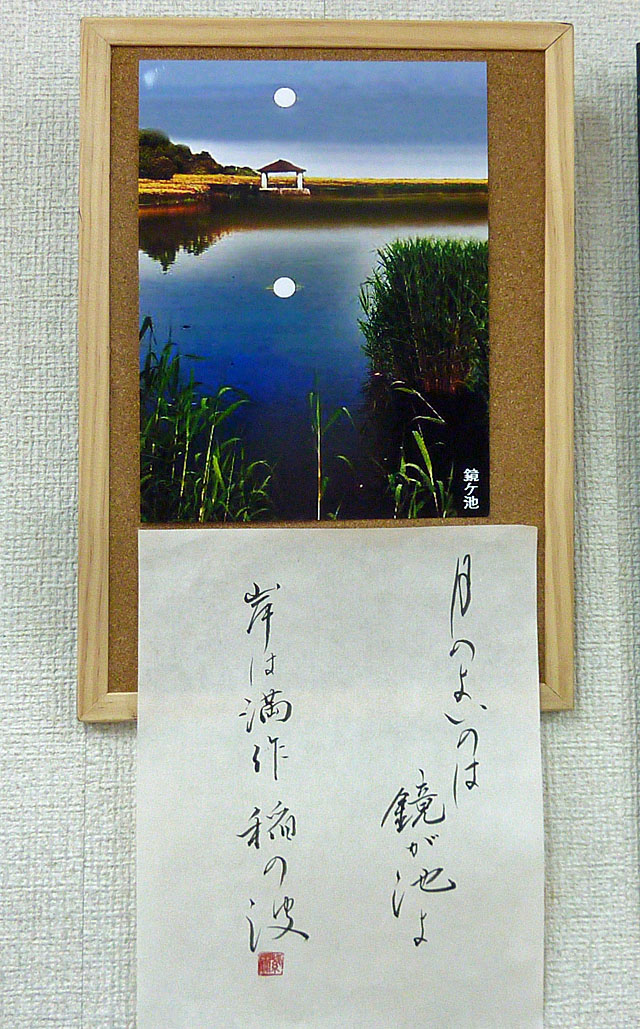 鏡ケ池
月のよいのは
鏡が池よ
岸は満作 稲の波